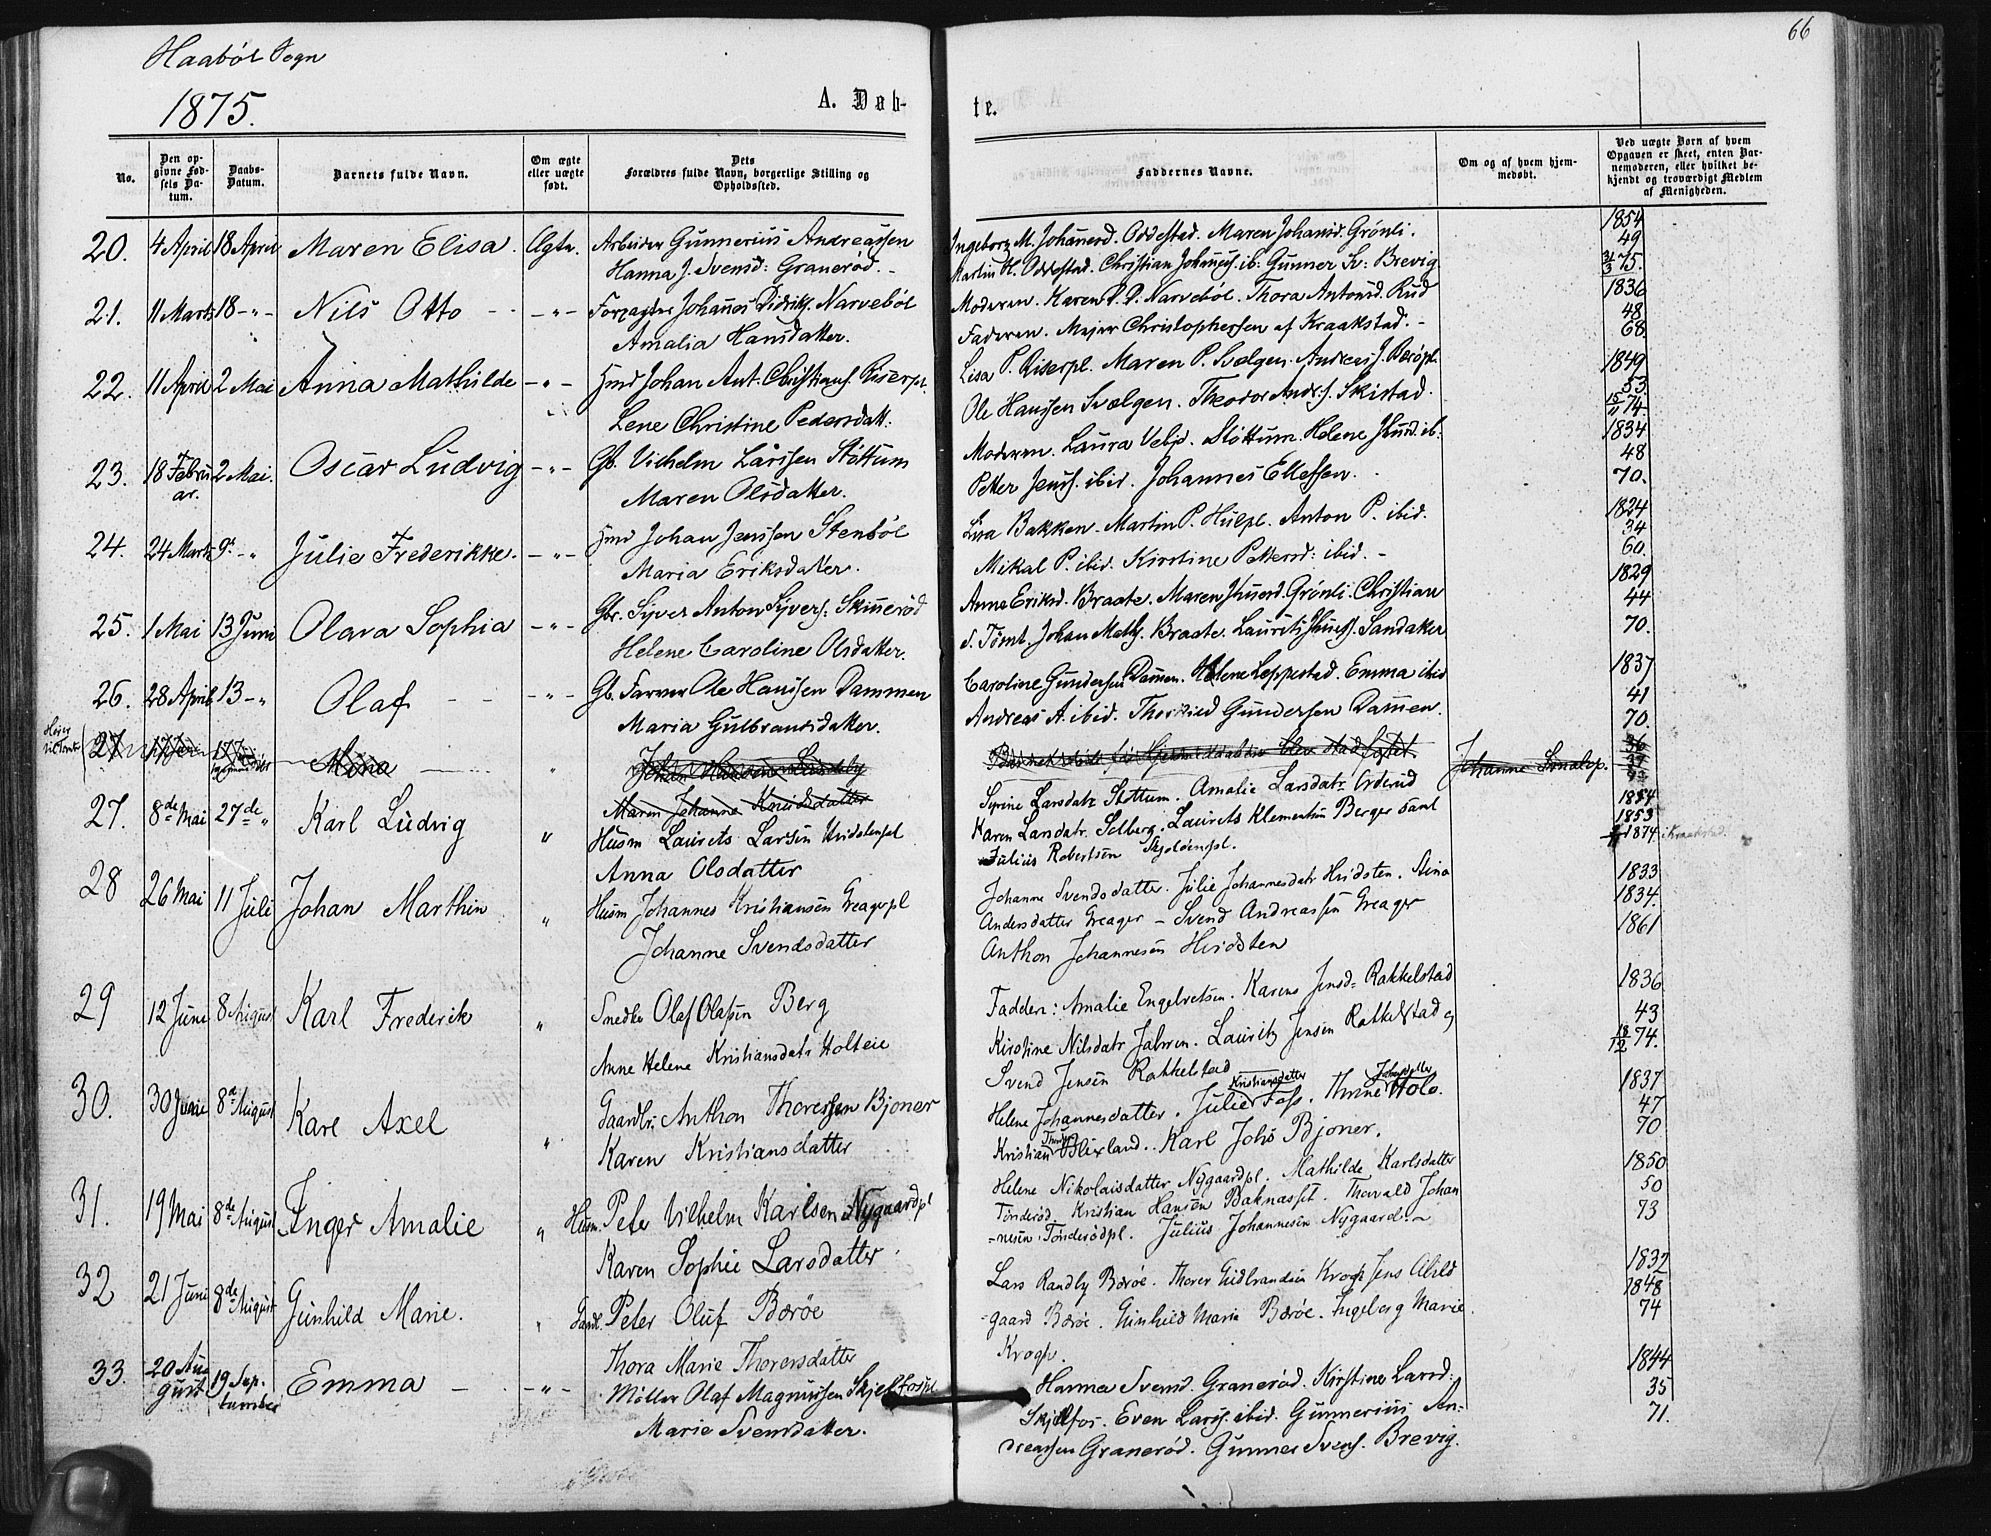 66
Haabøl Sogn
1875.
A. Døb-
te.
No.
Den op-
givne Fød-
sels Da-
tum.
Daabs-
Datum.
Barnets fulde Navn.
Om ægte
eller uægte
født.
Dets
Forældres fulde Navn, borgerlige Stilling og
Opholdssted.
Faddernes Navne.
Om og af hvem hjem-
medøbt.
Ved uægte Børn af hvem
Opgaven er skeet, enten Bar-
nemoderen, eller hvilket be-
kjendt og troværdigt Medlem
af Menigheden.
20. 4 April 18 April Maren Elisa. Ægte. Arbeider Gunnerius Andreassen
Hanna J. Svensd: Granerød. -
Ingeborg M. Johansd. Oddestad. Maren Johansd. Grønli.
Martin H. Oddestad. Christian Johanss. ib: Gunner Sv: Brevig
1854
49
31/3 75.
21. 11 Marts 18 - " - Nils Otto - " - Forpagter Johannes Didriks. Narvebøl
Amalia Hansdatter.
Moderen. Karen P. D. Narvebøl. Thora Antonsd. Rud
Faderen. Majer Christophersen af Kraakstad. -
1836
48
68.
22. 11 April 2 Mai Anna Mathilde - " - Hmd Johan Ant. Christians. Riserpl.
Lene Christine Pedersdatt:
Lisa P. Riserpl. Maren P. Svælgen. Andreas J. Berøpl.
Ole Hanssen Svælgen. Theodor Andr. s. Skistad.
1849
53
15/11 74
23. 18 Febru
ar. 2 Mai. Oscar Ludvig - " - Gb. Vilhelm Larssen Støttum
Maren Olsdatter.
Moderen. Laura Velp. Støttum. Helene Jhnsd. ib:
Petter Jenss. ibid. Johannes Ellefsen.
1834
48
70.
24. 24 Marts 9. - " Julie Frederikke. - " - Hmd Johan Jenssen Stenbøl
Maria Eriksdatter.
Lisa Bakken. Martin P. Hulpl. Anton P. ibid.
Mikal P. ibid. Kirstine Pettersd: ibid. -
1824
34
60.
25. 1 Mai 13 Juni Olava Sophia - " - Gbr. Syver Anton Syvers. Skinnerød
Helene Caroline Olsdatter.
Anne Eriksd. Braate. Maren Jhnsd. Grønli. Christian
S. Tomt. Johan Math. Braate. Laurits Jhnss. Sandaker
1829
44
70.
26. 28 April 13 - " Olaf - " - Gb. Farver Ole Hanssen Dammen
Maria Gulbrandsdatter.
Caroline Gundersen Dammen. Helene Leppestad. Emma ibid
Andreas A. ibid. Thorvild Gundersen Dammen.
1837
41
70.
27 Mina
Johan Hansen
Maren Johanne Knudsdatter
27. 8de Mai 27de " Karl Ludvig " Husm Laurits Larsen Hvidstenpl
Anna Olsdatter
Syrine Larsdatr Støttum. Amalie Larsdatr Orderud
Karen Larsdatr. Solberg. Laurits Klementsen Berger samt
Julius Robertsen Skjoldenpl.
1854
1853
1874 i Kraakstad.
28 26 Mai 11 Juli Johan Marthin " Husm Johannes Kristiansen Greagerpl
Johanne Svendsdatter
Johanne Svendsdatter. Julie Johannesdatr Hvidsten. Stina
Andersdatter Greager - Svend Andreassen Greager
Anthon Johannesen Hvidsten
1833
1834.
1861
29 12 Juni 8 August Karl Frederik " Snedker Olaf Olafsen Berg
Anne Helene Kristiansdatr Holteie
Faddere: Amalie Engelretsen. Karens Jensd= Rakkelstad
Kirstine Nilsdatr Jahren. Lauritz Jensen Rakkelstad og
Svend Jensen Rakkelstad
1836
43
18/12 74.
30. 30 Junie 8de August Karl Axel " Gaardbr. Anthon Thoressen Bjoner
Karen Kristiansdatter
Helene Johannesdatter. Julie Kristiansdatter Foss. Thrine Holo.
Kristian Blixland. Karl Johs Bjoner.
1837
47
70
31. 19 Mai 8de August Inger Amalie " Husm. Peter Vilhelm Karlsen Nygaardpl
Karen Sophie Larsdatter
Helene Nikolaisdatter Nygaardpl. Mathilde Karlsdatter
Tønderød. Kristian Hansen Baknasset. Thorvald Johan
=nesen. Tønderødpl. Julius Johannesen Nygaard.
1850
50
73
32 21 Juni 8de August Gunhild Marie. " Gaardb. Peter Oluf Børøe
Thora Marie Thorersdatter
Lars Randly Børøe. Thorer Gulbrandsen Krogh Jens Alild
=gaard Børøe. Gunhild Marie Børøe. Ingeborg Marie
Krogh.
1832
1848
74
33. 20 Au
gust 19 Sep.
tember Emma - " - Møller Olaf Magnussen Skjelfospl
Marie Svensdatter.
Hanna Svensd. Granerød. Kirstine Larsd:
Skjelfos. Even Larss. ibid. Gunnerius An-
dreassen Granerød. Gunner Svens. Brevig.
1844
35
71.